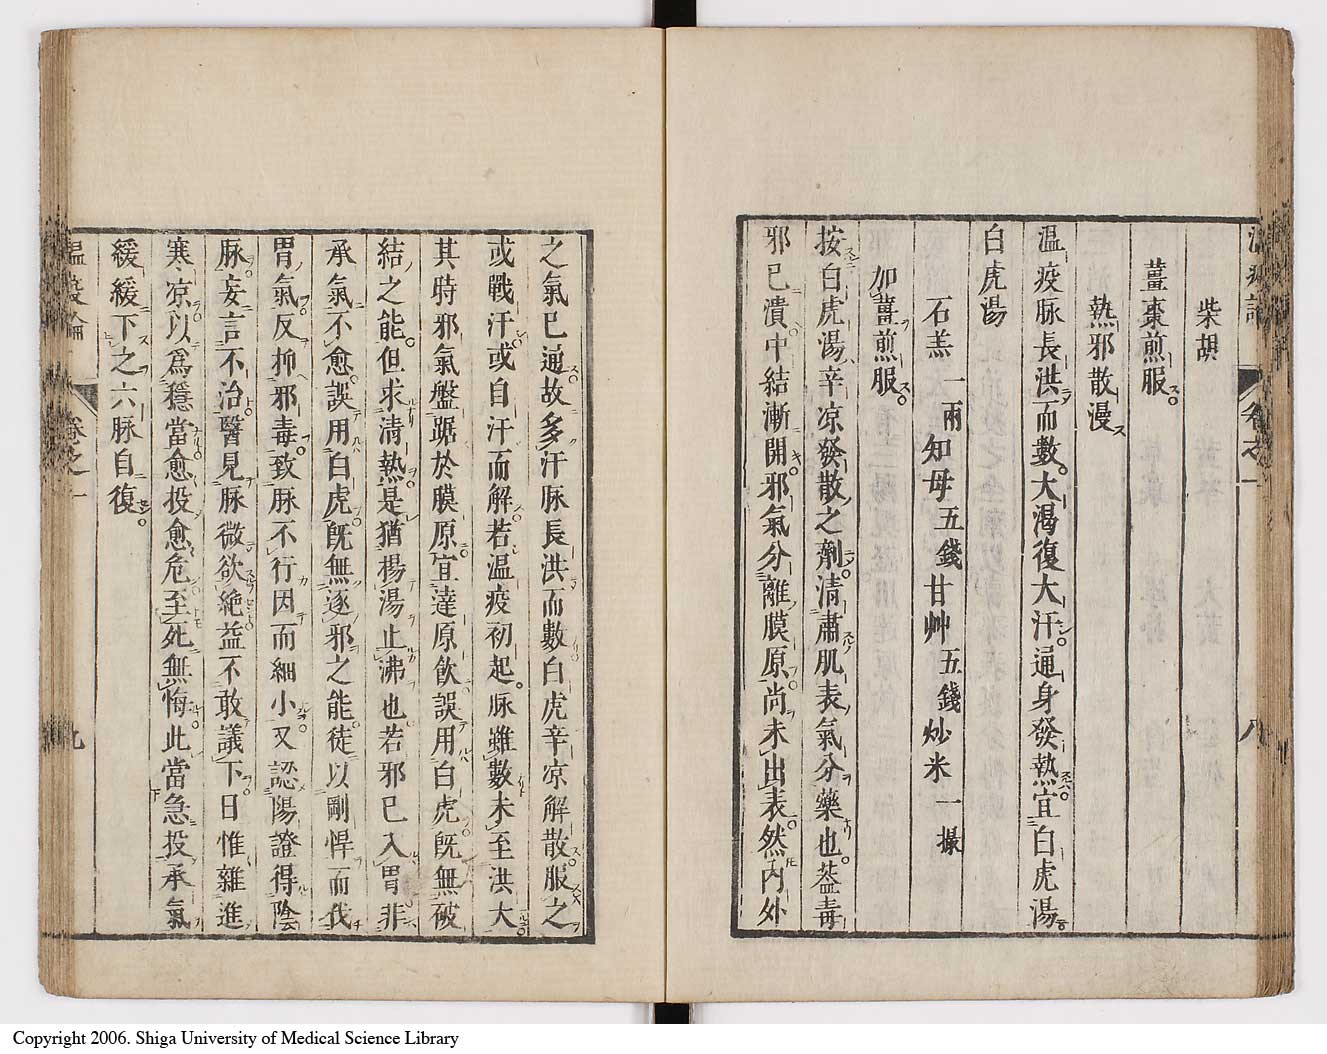 柴胡
薑棗煎服
熱邪散漫
溫疫脉長洪而數大渴復大汗通身發熱宜白虎湯
白虎湯
石羔 一兩 知母 五錢 甘艸 五錢 炒米 一撮
加薑煎服
按白虎湯辛凉發散之劑清肅肌表氣分藥也葢毒
邪已潰中結漸開邪氣分離膜原尚未出表然內外
之氣已通故多汗脉長洪而數白虎辛凉解散服之
或戰汗或自汗而解若溫疫初起脉雖數未至洪大
其時邪氣盤踞於膜原宜達原飲誤用白虎既無破
結之能但求清熱是猶揚湯止沸也若邪已入胃非
承氣不愈誤用白虎既無逐邪之能徒以剛悍而伐
胃氣反抑邪毒致脉不行因而細小又認陽證得陰
脉妄言不治醫見脉微欲絶益不敢議下日惟雜進
寒凉以爲穩當愈投愈危至死無悔此當急投承氣
緩緩下之六脉自復
溫疫論 卷之一 九
Copyright 2006. Shiga University of Medical Science Library